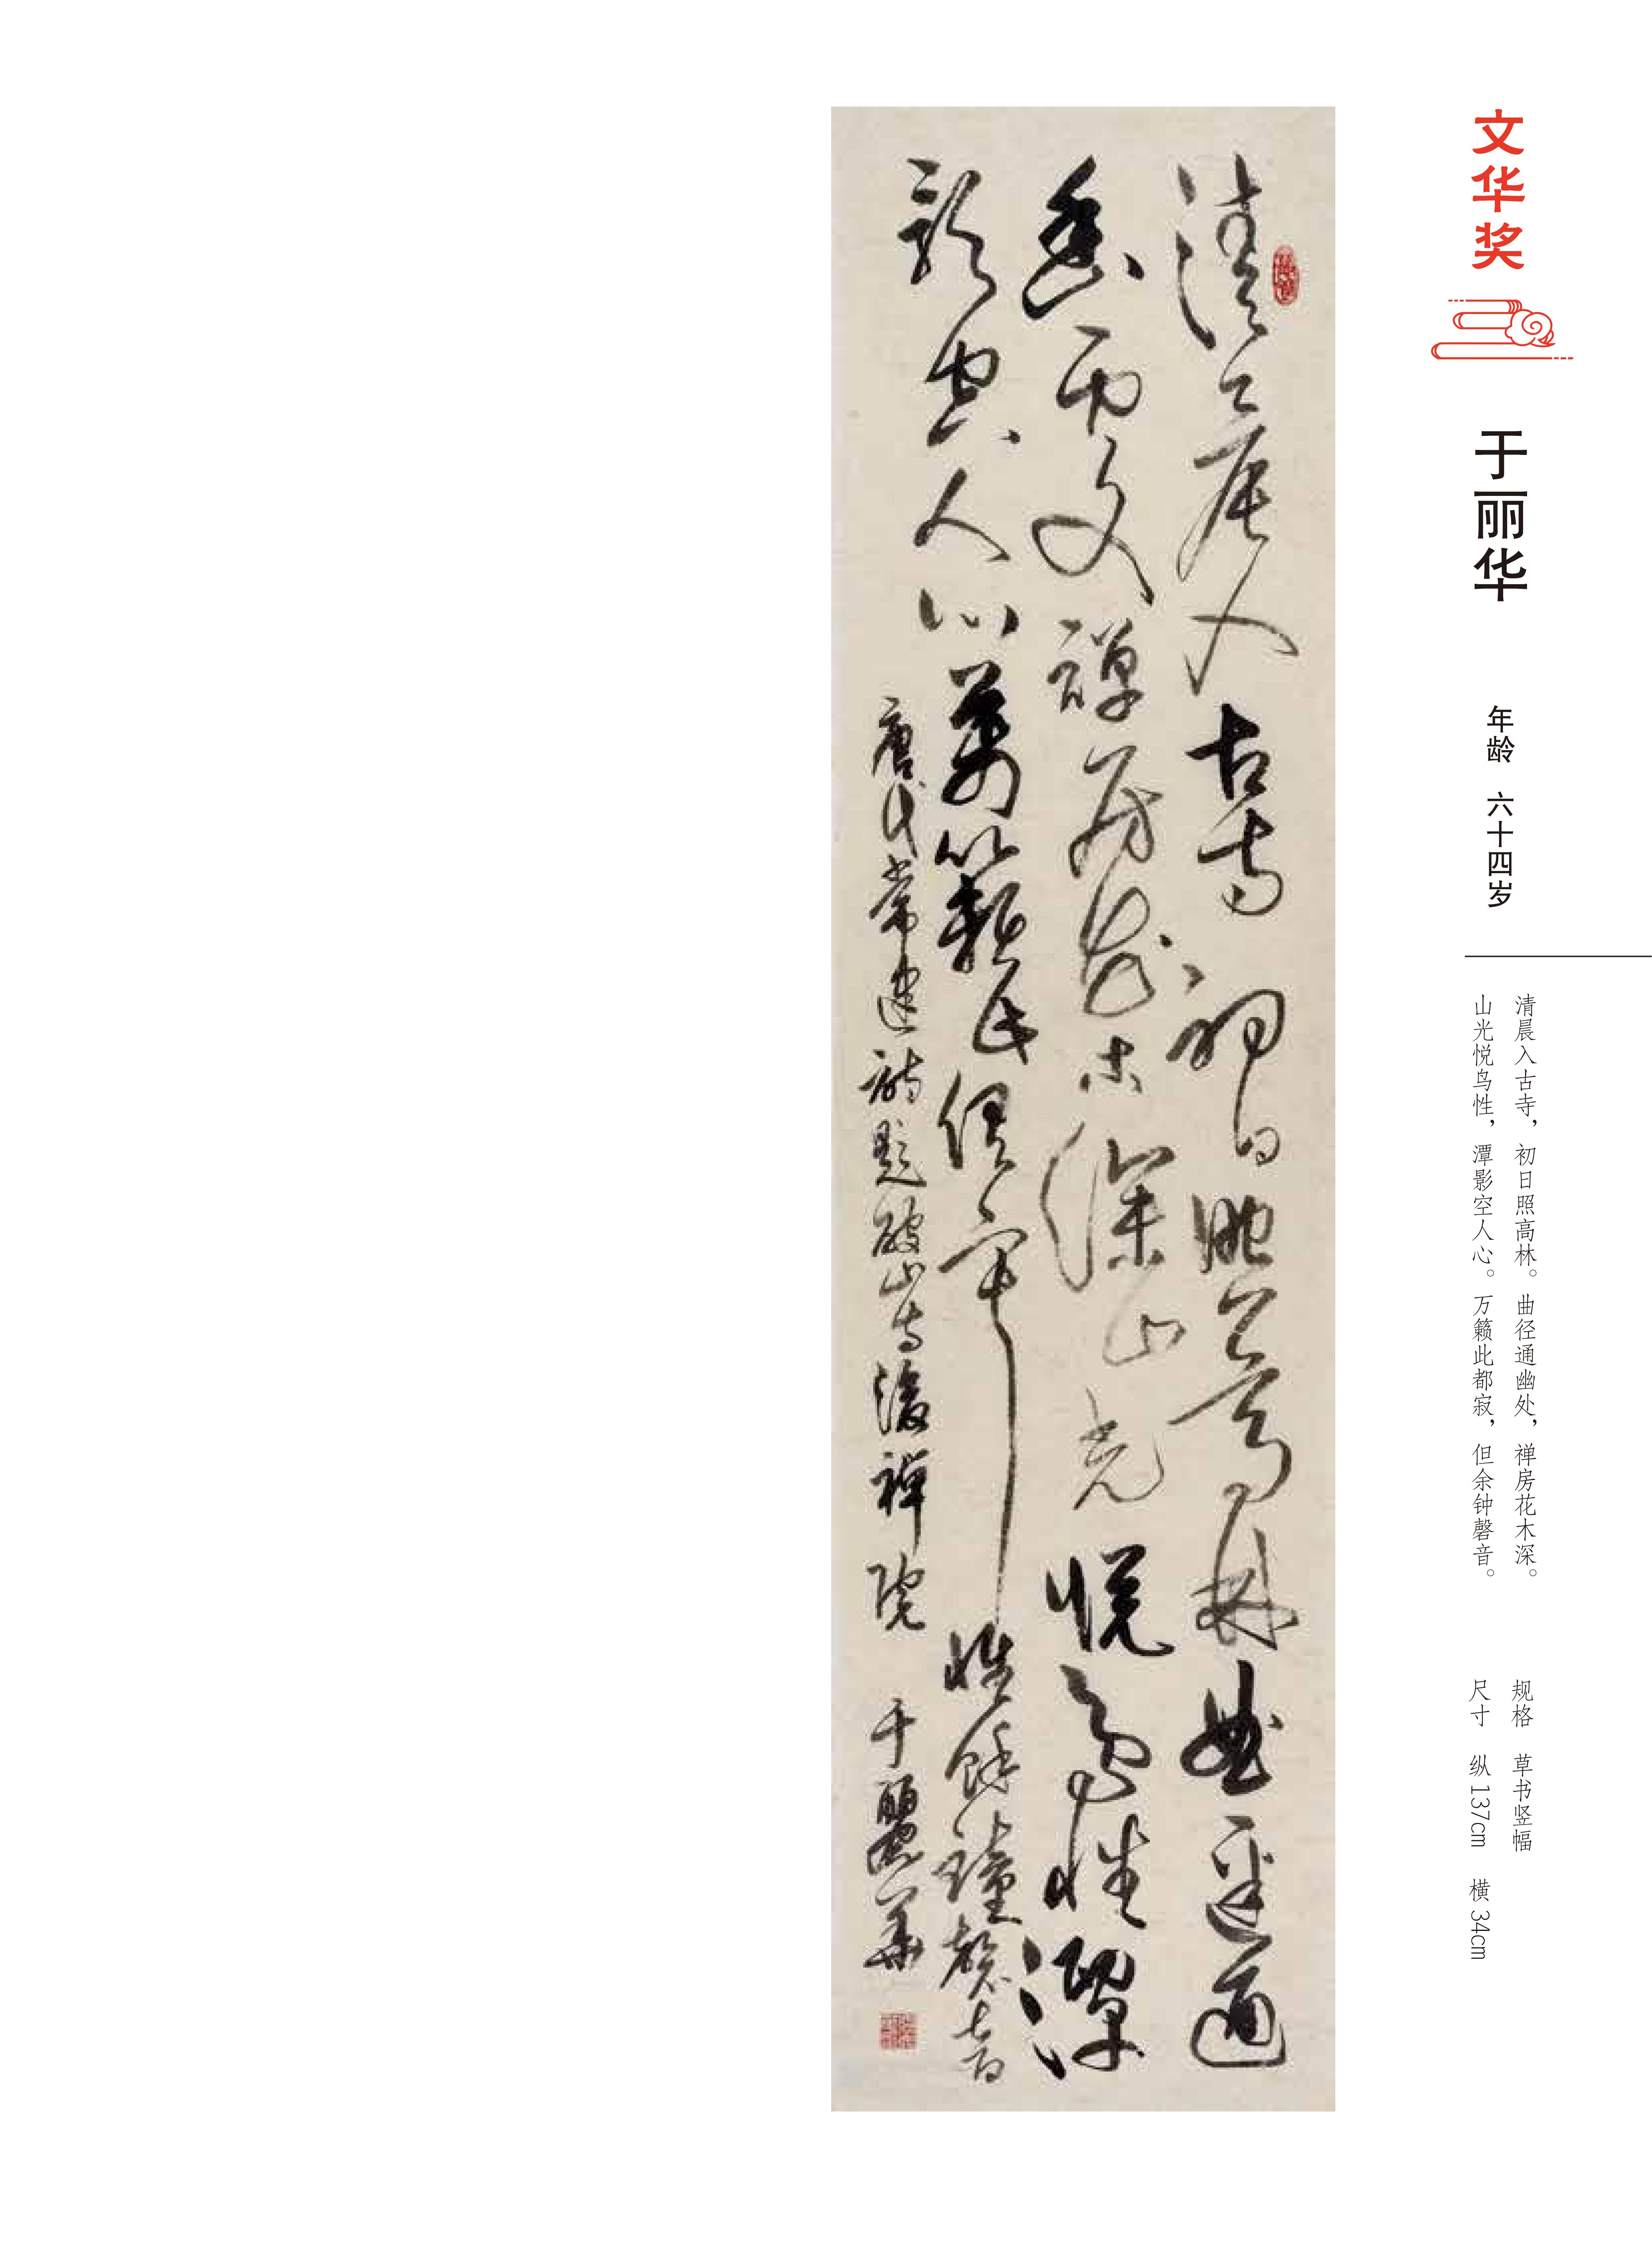 文华奖
于丽华
年龄 六十四岁
清晨入古寺，初日照高林。曲径通幽处，禅房花木深。
山光悦鸟性，潭影空人心。万籁此都寂，但余钟磬音。
规格 草书竖幅
尺寸 纵 137cm 横 34cm
清晨入古寺初日照高林曲迳通
幽處禪房花木深山光悦鳥性潭
影空人心萬籟此俱寂惟餘鐘磬音
唐代常建詩題破山寺後禪院 于麗華